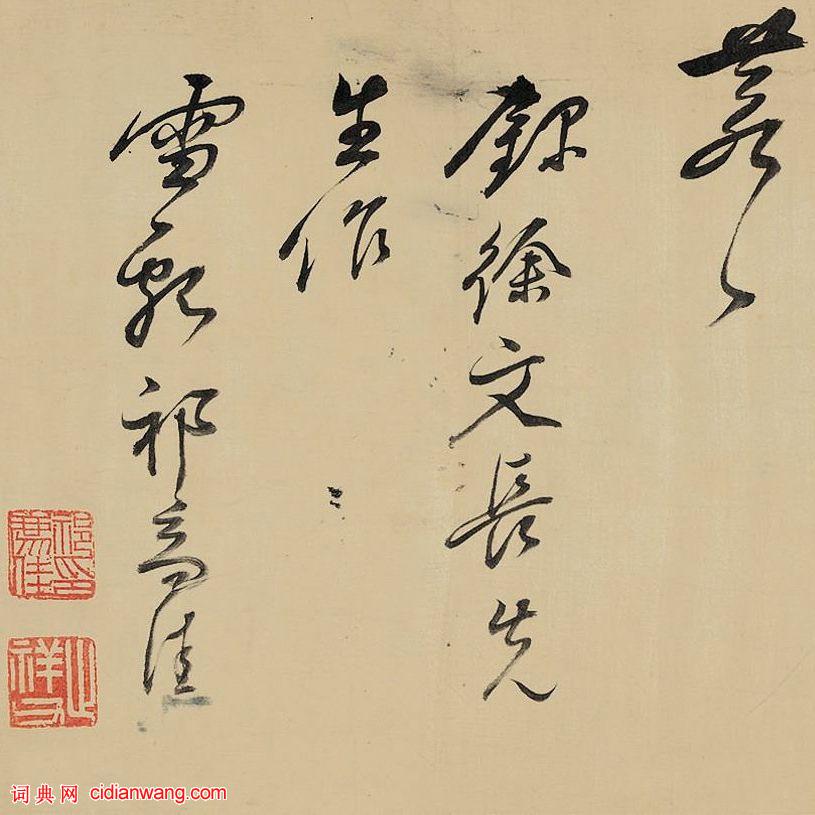 錄徐文長先
生作
雪瓢祁豸佳
祁印豸佳
止祥
词典网 cidianwang.com